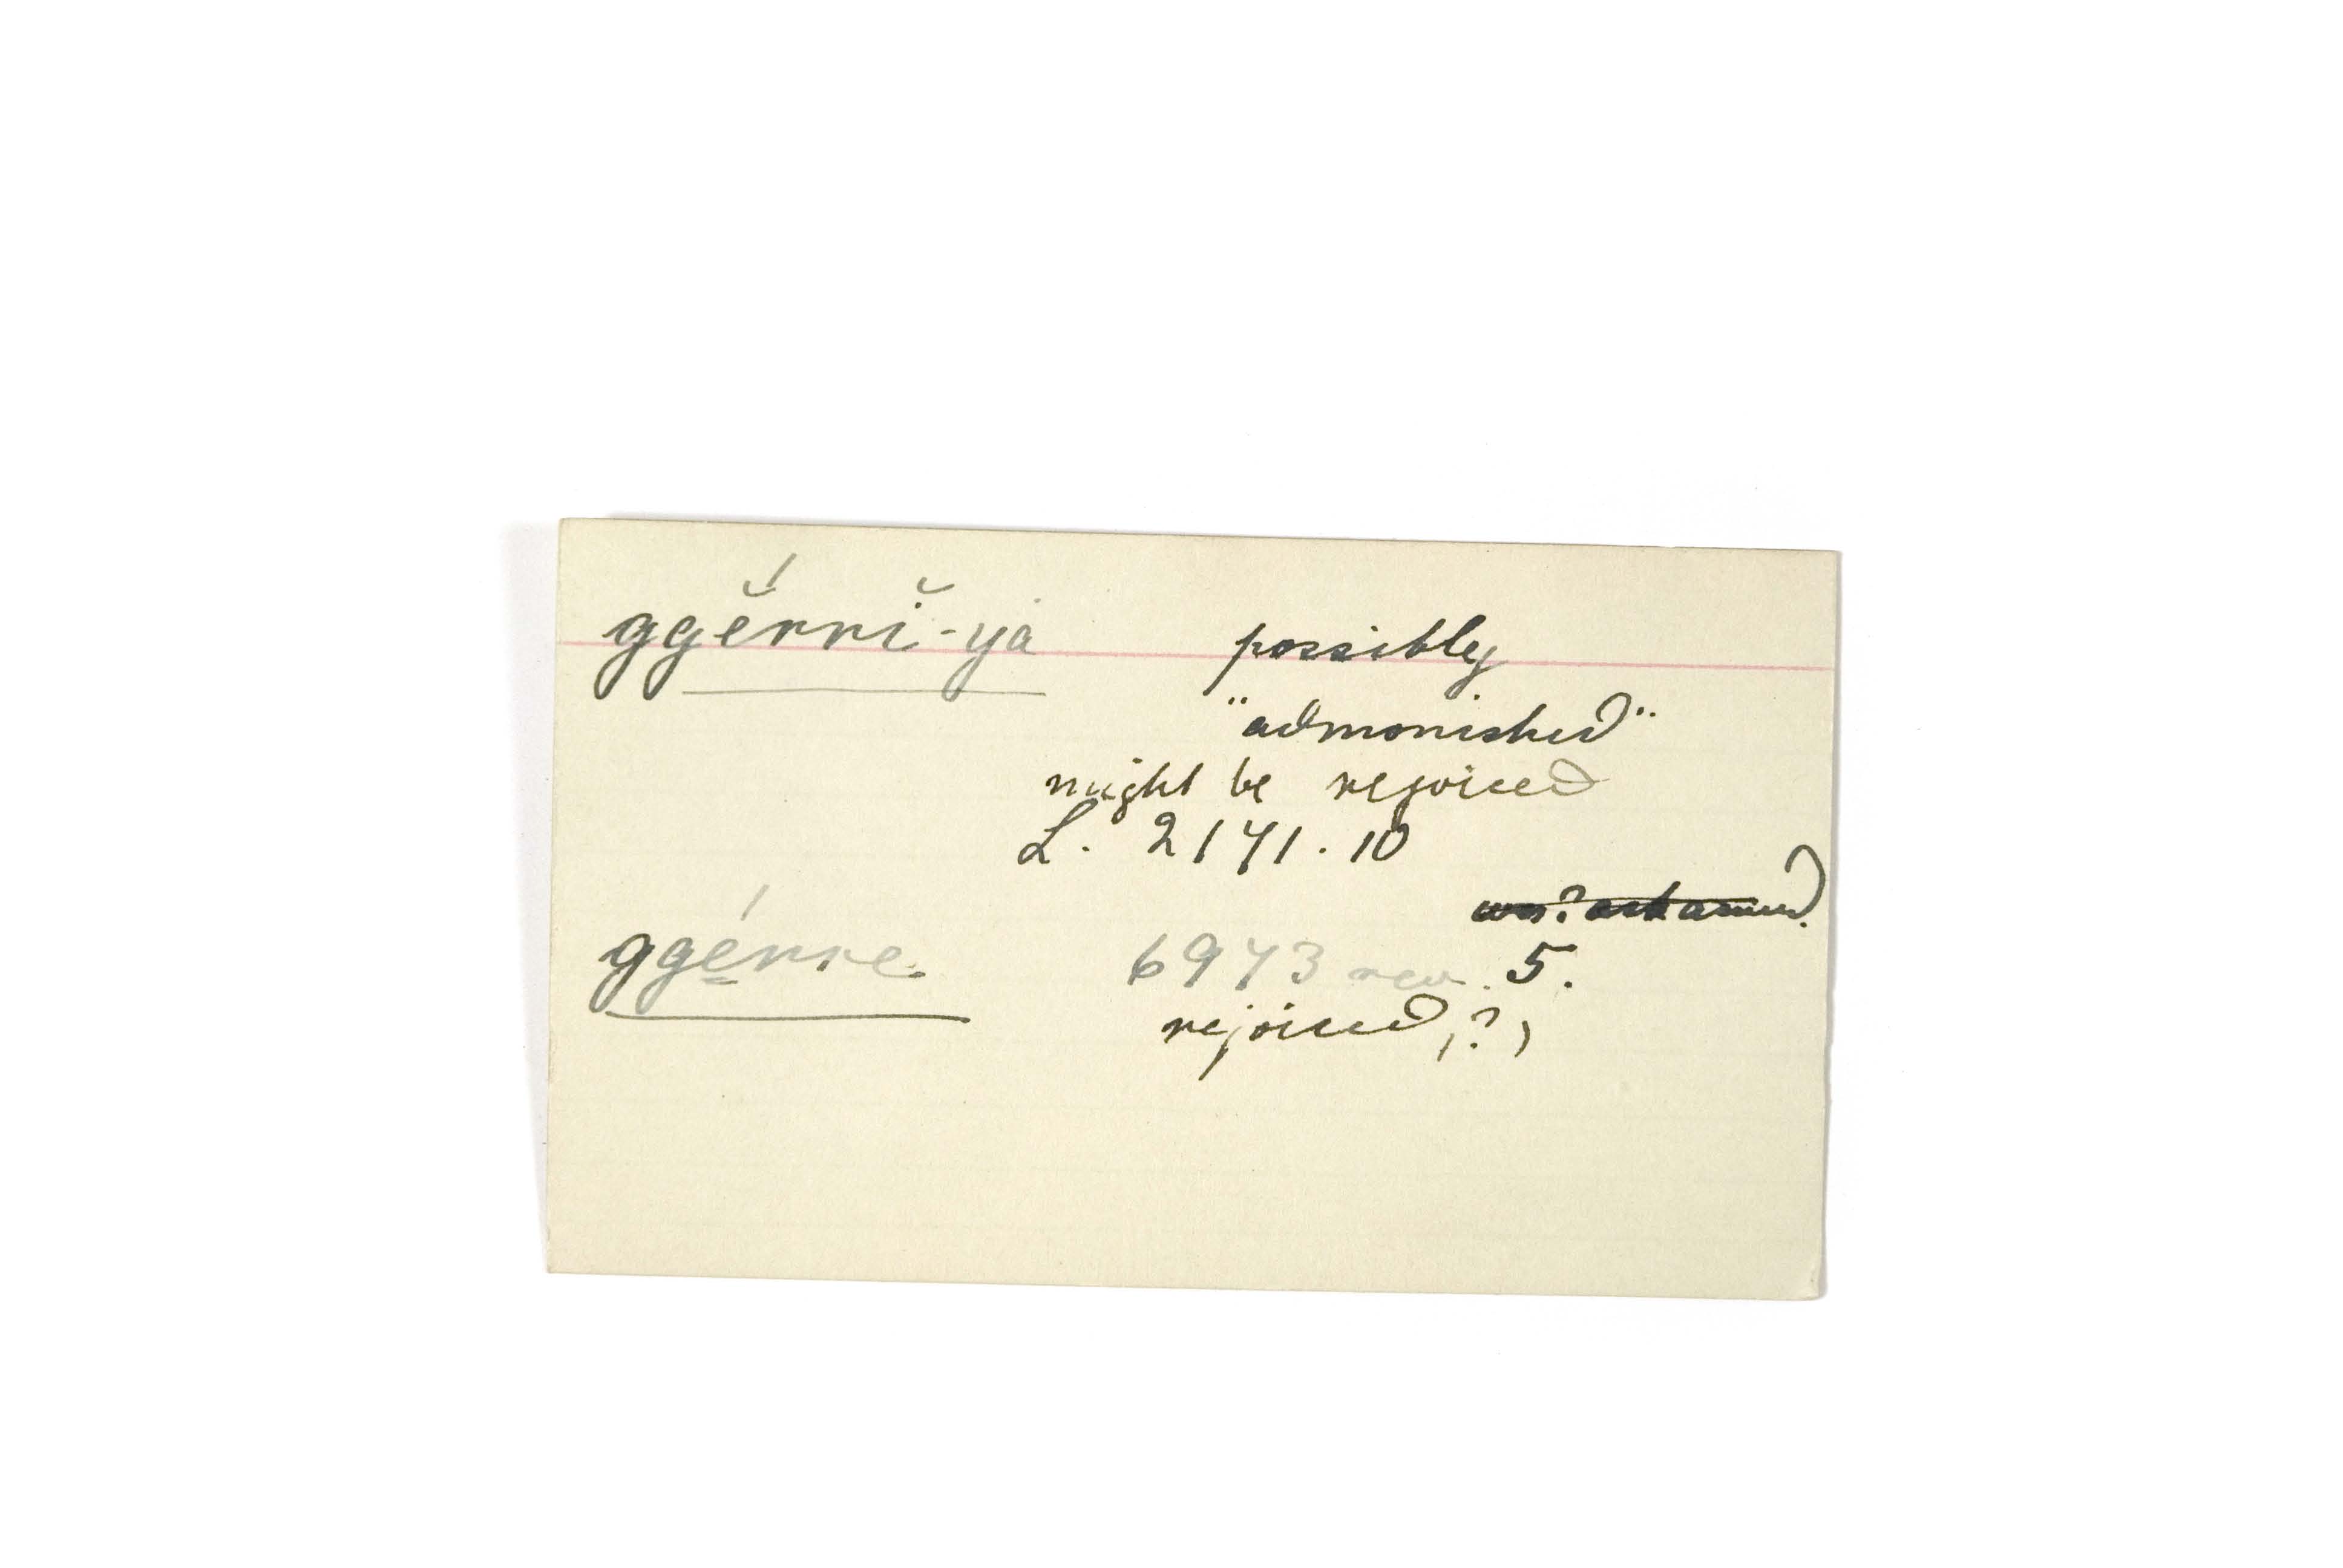 ggĕ́rrĭ-ya possibly
"admonished"
might be rejoiced
L. 2171.10
ggérre 6973 rev. 5.
rejoiced, ?,